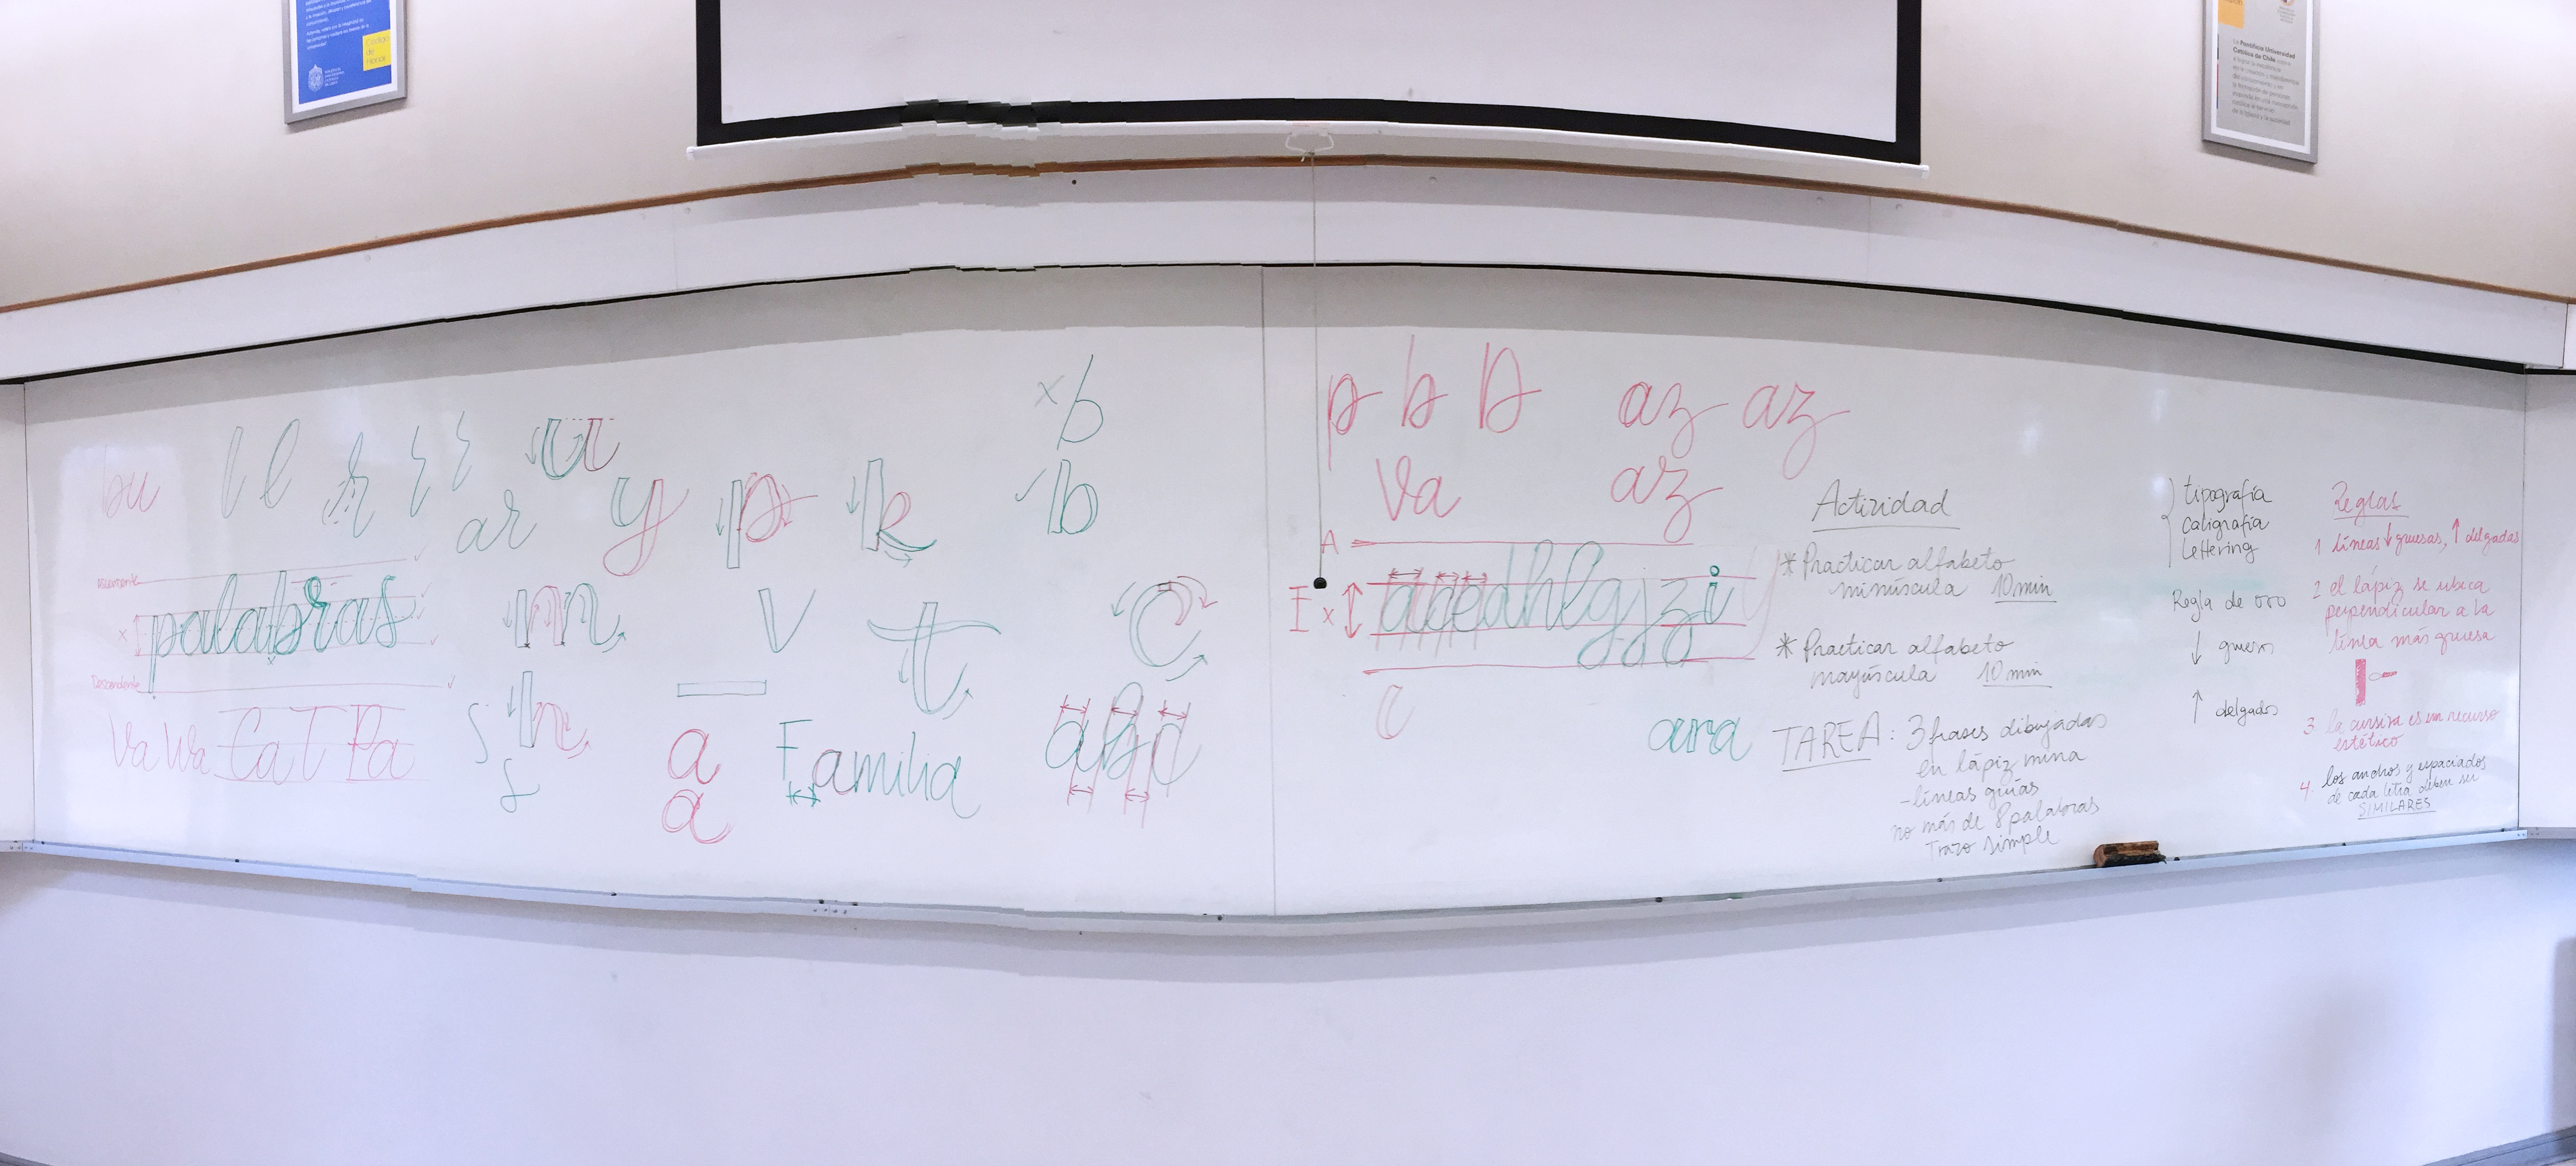 Código
de
Honor
La Pontificia Universidad
Católica de Chile
bu
l l r
ar
u
y
p
k
b
b
Ascendente
x
palabras
Descendente
m
v
t
c
Va Wa Ca T Pa
s
s
n
a
a
Familia
a b c
p b D az az
Va az
A
E x
a c e d h l g j z i y
c
ana
Actividad
* Practicar alfabeto
minúscula 10 min
* Practicar alfabeto
mayúscula 10 min
TAREA: 3 frases dibujadas
en lápiz mina
- líneas guías
no más de 8 palabras
Trazo simple
tipografía
caligrafía
lettering
Regla de oro
↓ grueso
↑ delgados
Reglas
1 líneas ↓ gruesas, ↑ delgadas
2 el lápiz se ubica
perpendicular a la
línea más gruesa
3. la cursiva es un recurso
estético
4. los anchos y espaciados
de cada letra deben ser
SIMILARES